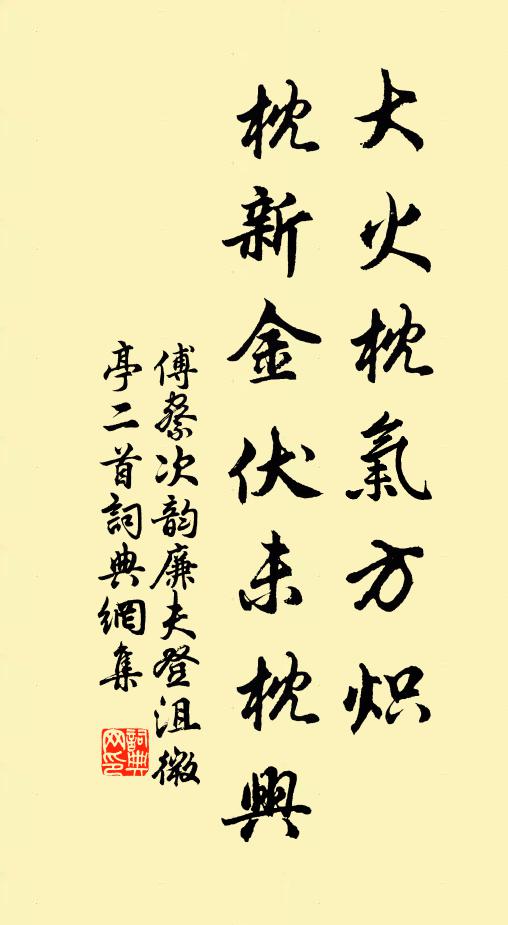 大火枕氣方炽
枕新金伏未枕興
傅察次韵廉夫登沮微
亭二首詞典網集
詞典
网印